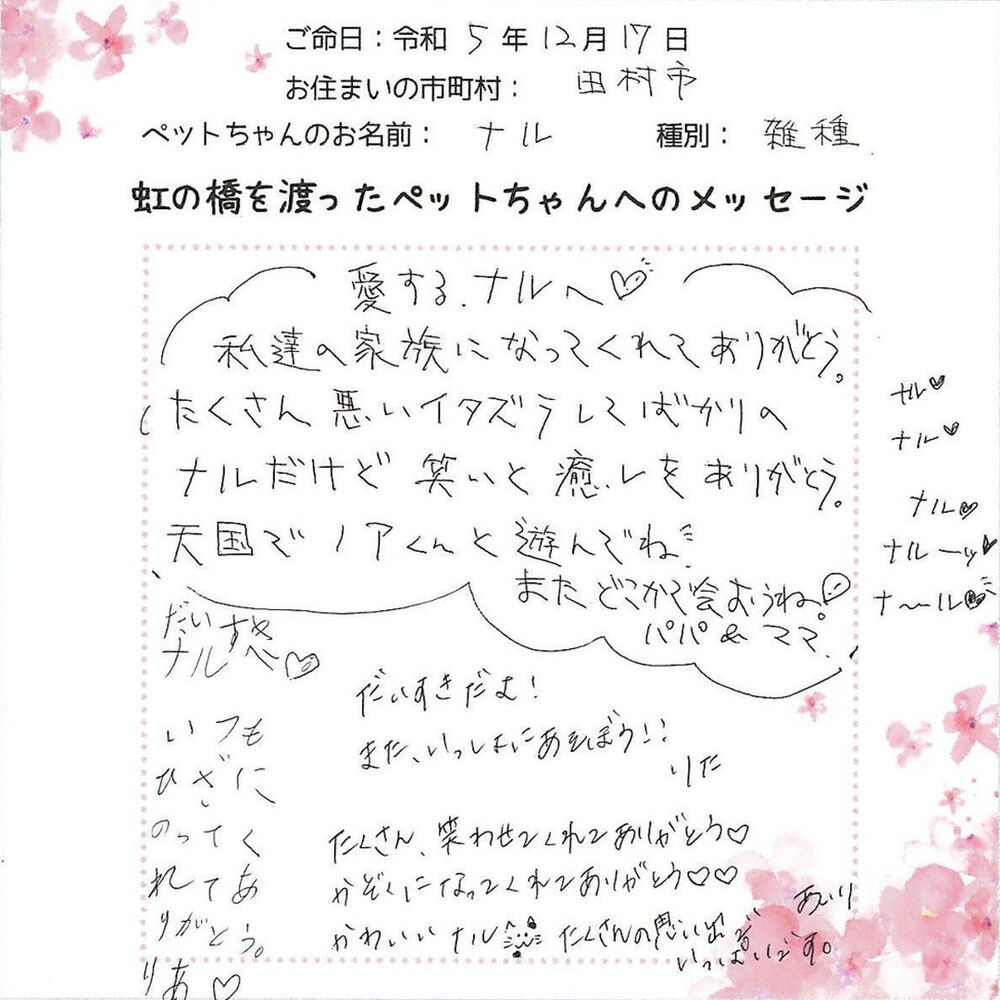 ご命日：令和 5 年 12 月 17 日
お住まいの市町村： 田村市
ペットちゃんのお名前： ナル 種別： 雑種
虹の橋を渡ったペットちゃんへのメッセージ
愛する、ナルへ♡
私達の家族になってくれてありがとう。
たくさん 悪いイタズラしてばかりの
ナルだけど 笑いと 癒しをありがとう。
天国でノアくんと遊んでね!!
またどこかで会おうね。
パパ & ママ
ナル♡
ナル♡
ナル♡
ナルーッ♡
ナ〜ル♡
だいすき
ナルへ♡
いつも
ひざに
のってく
れてあ
りがとう。
りあ♡
だいすきだよ！
また、いっしょにあそぼう!!
りた
たくさん、笑わせてくれてありがとう♡
かぞくになってくれてありがとう♡♡
かわいい ナル たくさんの思い出で
いっぱいです。
あいり